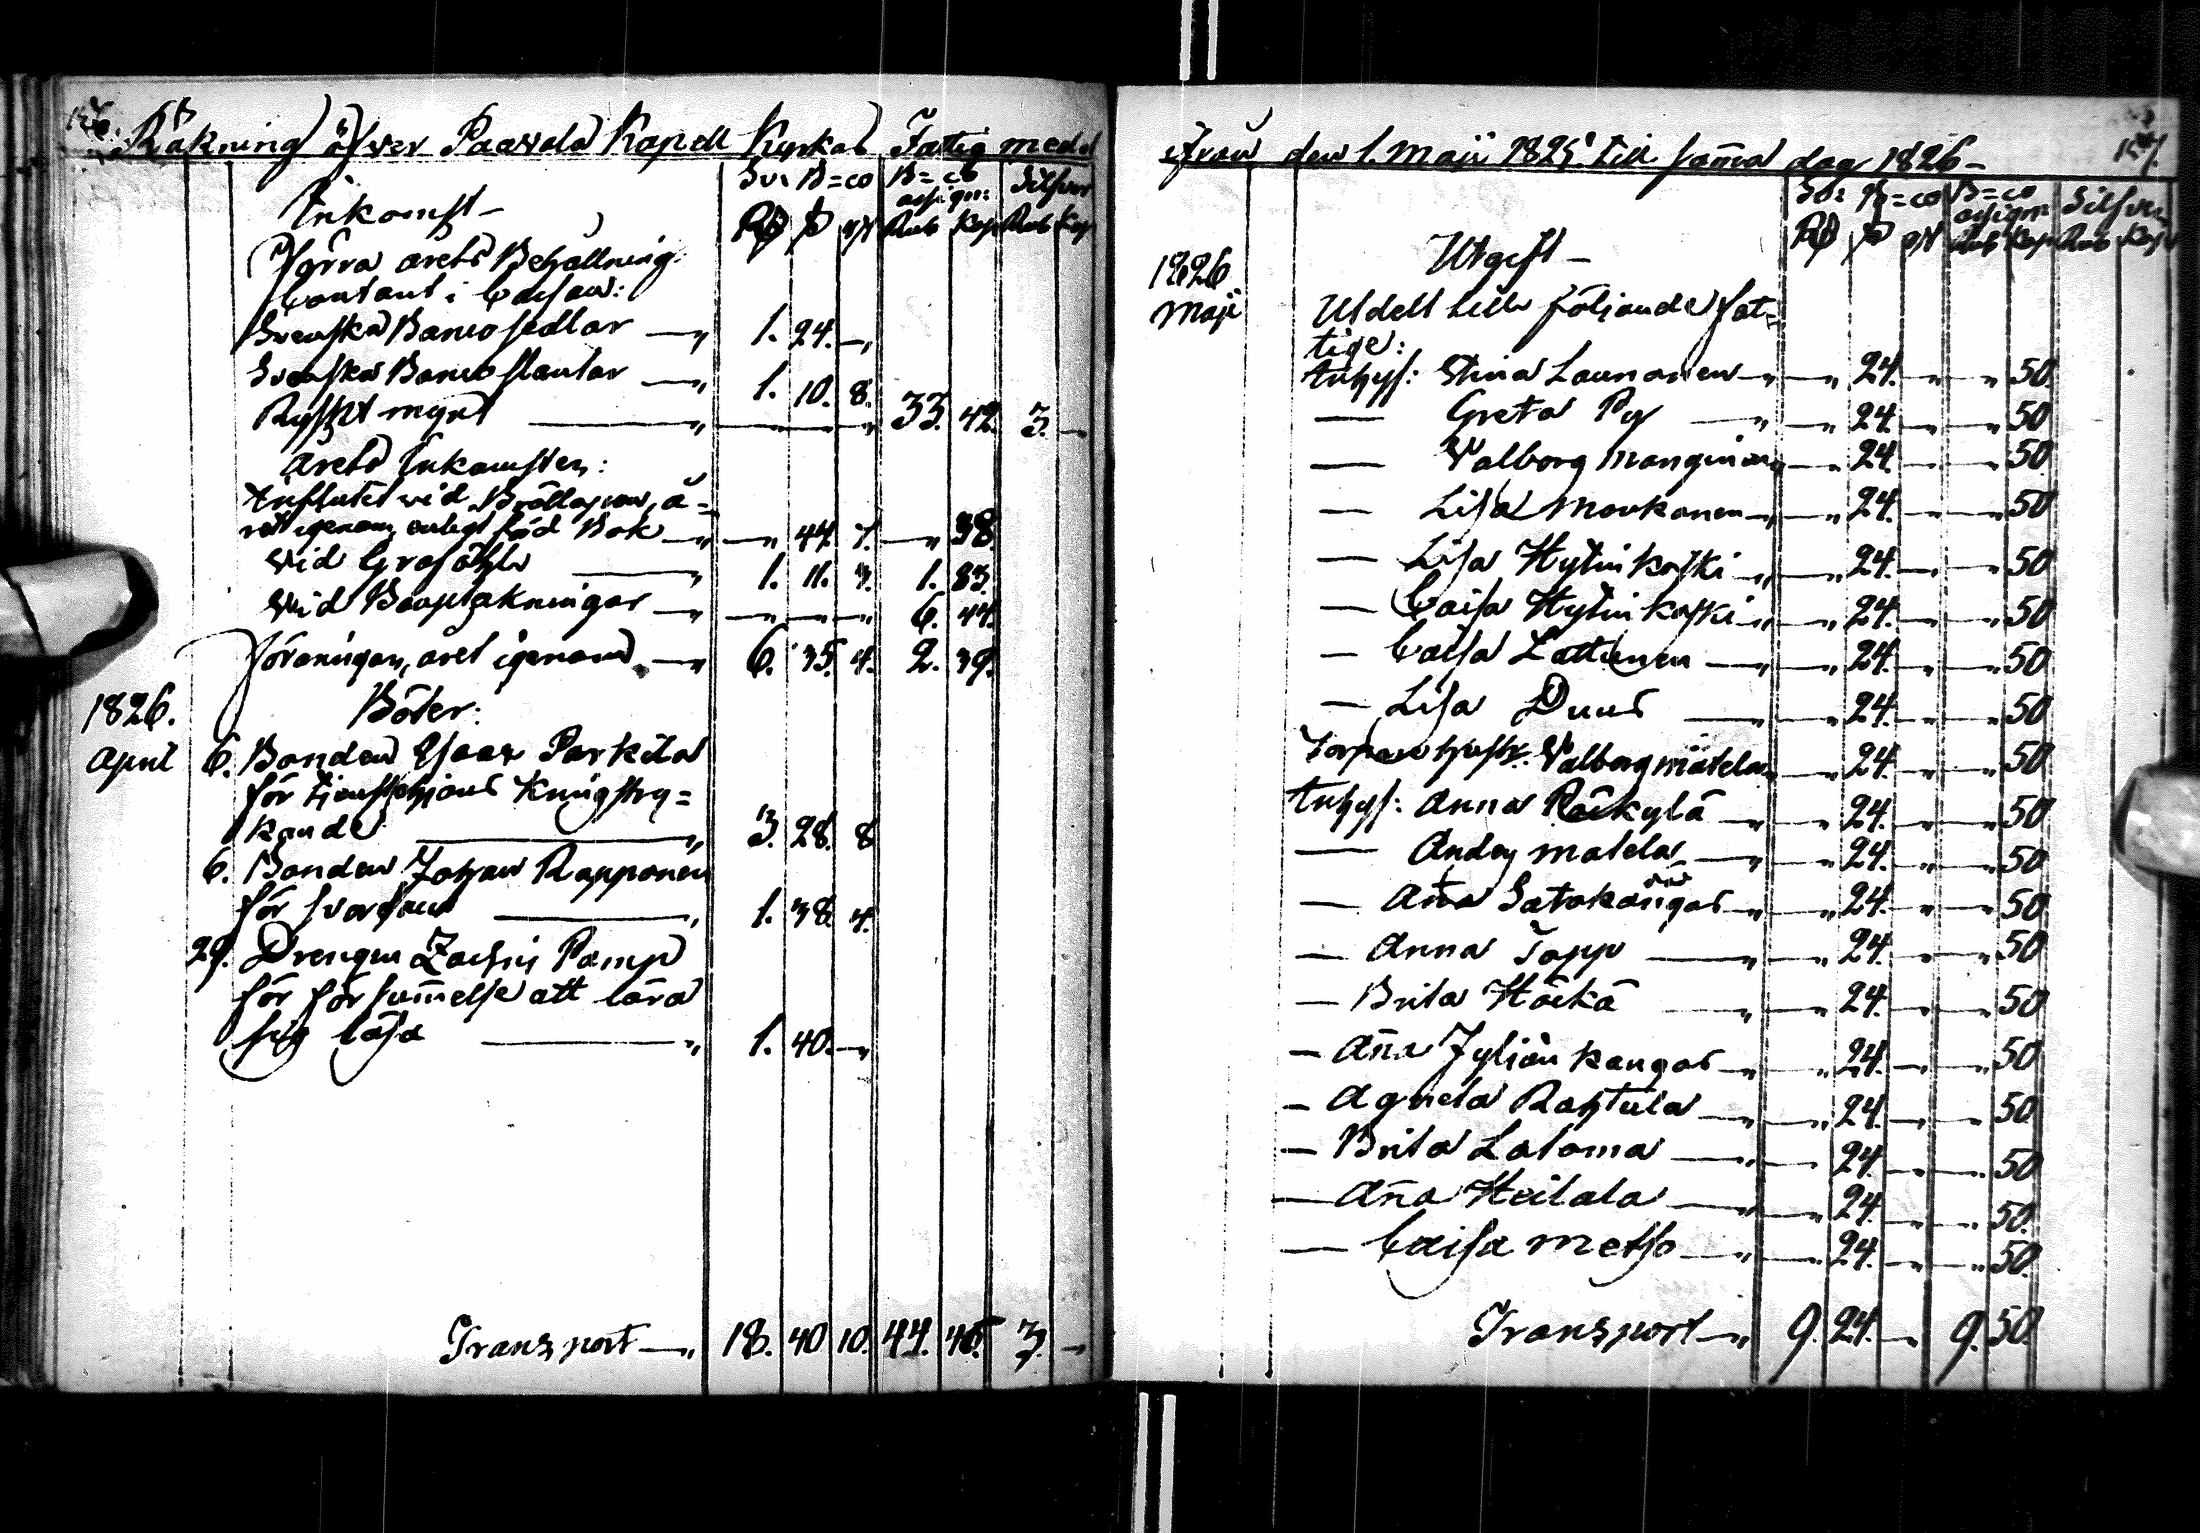 Räkning öfver Paavola Kapell Kyrkas Fattig medel
Inkomst
Sv: B=co B=co assign: Silfver
Rd ß rst Rub Kop Rub Kop
Förra årets Behållning
Contant i Cassan:
Svenska Banco sedlar — 1. 24. —
Svenska Banco slantar — 1. 10. 8.
Ryskt mynt — — — 33. 42. 3. —
Årets Inkomster:
Influtit vid Bröllopen, å=
ret igenom, enligt Bok — — 44. 7. — 38.
Vid Grafööhl — 1. 11. 3. 1. 83.
Vid Barnptakningar — — — — 6. 44.
Föraningen, året igenom — 6. 35. 4. 2. 39.
1826. Böter:
April 6. Bonden Isaac Parkila
för tjensthjons Kringstry=
kande — 3. 28. 8
6. Bonden Johan Rapponen
för svordom — 1. 38. 4.
29. Drengen Zachris Pamp
för försummelse att lära
sig läsa — 1. 40. —
Transport — 18. 40 10. 44. 46. 3. —
ifrån den 1. Maji 1825 till samma dag 1826 — 157.
Sv: B=co B=co assign: Silfver
Rd ß rst Rub Kop Rub Kop
1826 Utgift —
Maji Utdelt till följande fat=
tige:
Inhys: Stina Launonen — — 24. — — 50.
— Greta Py — — 24. — — 50.
— Valborg Manginen — — 24. — — 50.
— Lisa Moukanen — — 24. — — 50.
— Lisa Hytinkoski — — 24. — — 50
— Caisa Hytinkoski — — 24. — — 50
— Caisa Lattunen — — 24. — — 50
— Lisa Duus — — 24. — — 50
Torpare hustr: Valborg Mätelä — — 24. — — 50
Inhys: Anna Räikylä — — 24. — — 50
— Anders Matela — — 24. — — 50
— Anna Satokangas — — 24. — — 50
— Anna Topp — — 24. — — 50
— Brita Höckä — — 24. — — 50
— Anna Jyljänkangas — — 24. — — 50
— Agneta Rahtula — — 24. — — 50
— Brita Latoma — — 24. — — 50
— Anna Heilala — — 24. — — 50
— Caisa Metso — — 24. — — 50
Transport — 9. 24. — 9. 50.